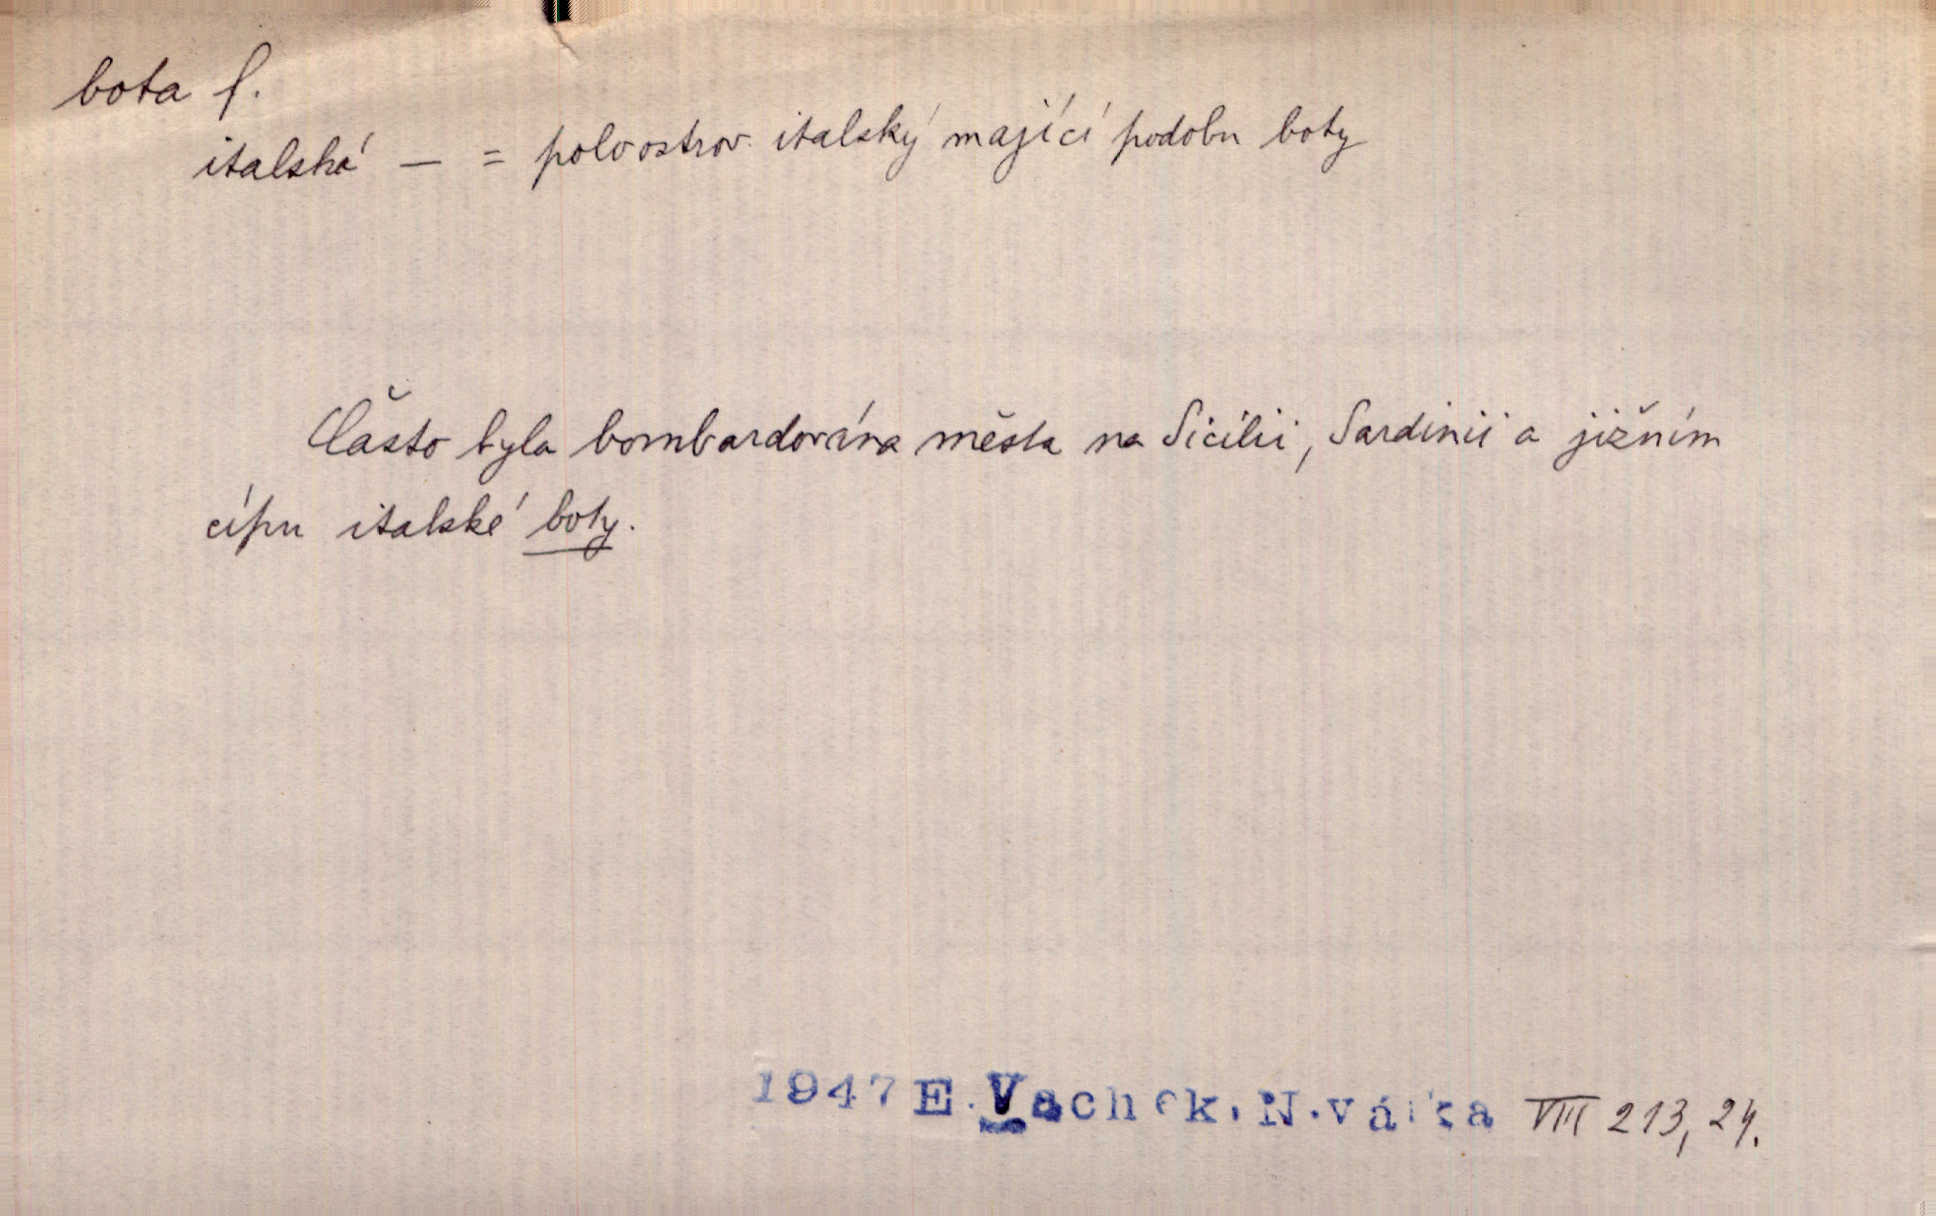 bota f.
italská — = poloostrov italský mající podobu boty
Často byla bombardována města na Sicilii, Sardinii a jižním
cípu italské boty.
1947 E. Vachek. N. válka VIII 213, 24.